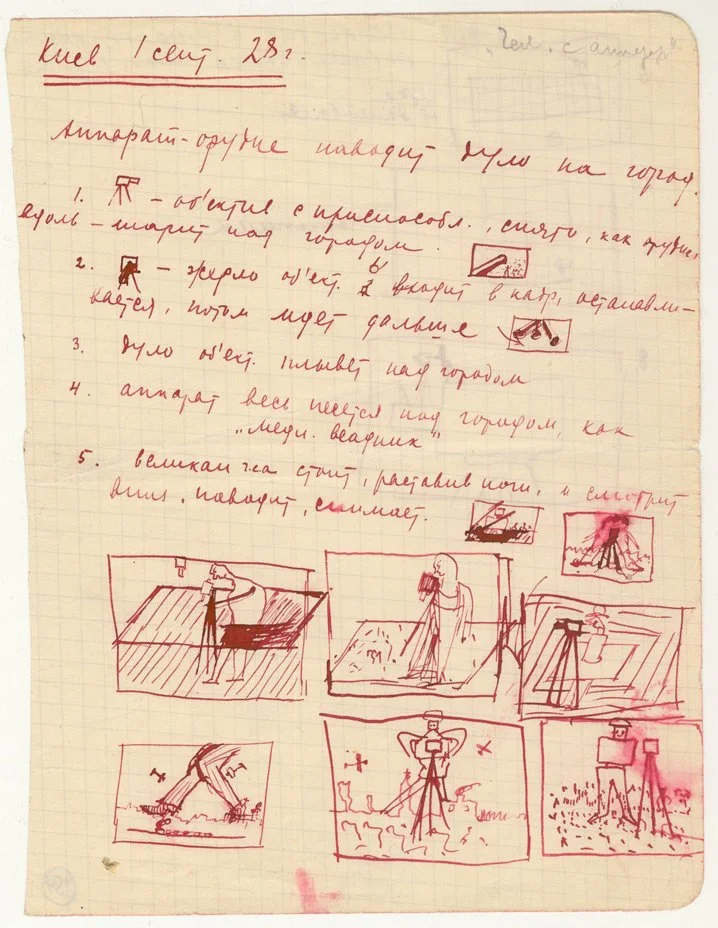 „Чел. с аппар."
Киев 1 сент. 28 г.
Аппарат-орудие наводит дуло на город.
1. – об'ектив с приспособл., снято, как орудие,
вдоль – шарит над городом.
2. – жерло об'ект. в входит в кадр, останавли-
вается, потом идет дальше
3. дуло об'ект. плывет над городом
4. аппарат весь несется над городом, как
„медн. всадник"
5. великан стоит, расставив ноги, и смотрит
вниз, наводит, снимает.